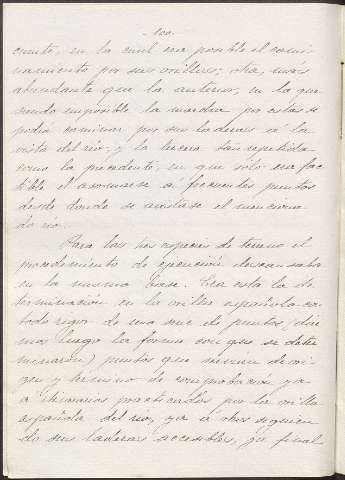 - 100 -
cuente, en la cual era posible el cami-
namiento por sus orillas; otra, más
abundante que la anterior, en la que
siendo imposible la marcha por estas se
podia caminar por sus laderas á la
vista del rio; y la tercera tan repetida
como la precedente, en que solo era fac-
tible el asomarse á frecuentes puntos
desde donde se avistase el menciona-
do rio.
Para las tres especies de terreno el
procedimiento de ejecucion descansaba
en la misma base. Era esta la de-
terminación en la orilla española con
todo rigor de una serie de puntos (dire-
mos luego la forma con que se deter-
minaron) puntos que sirvieran de ori-
gen y termino de comprobacion ya
á itinerarios practicados por la orilla
española del rio, ya á otros siguien-
do sus laderas accesibles, ya final-